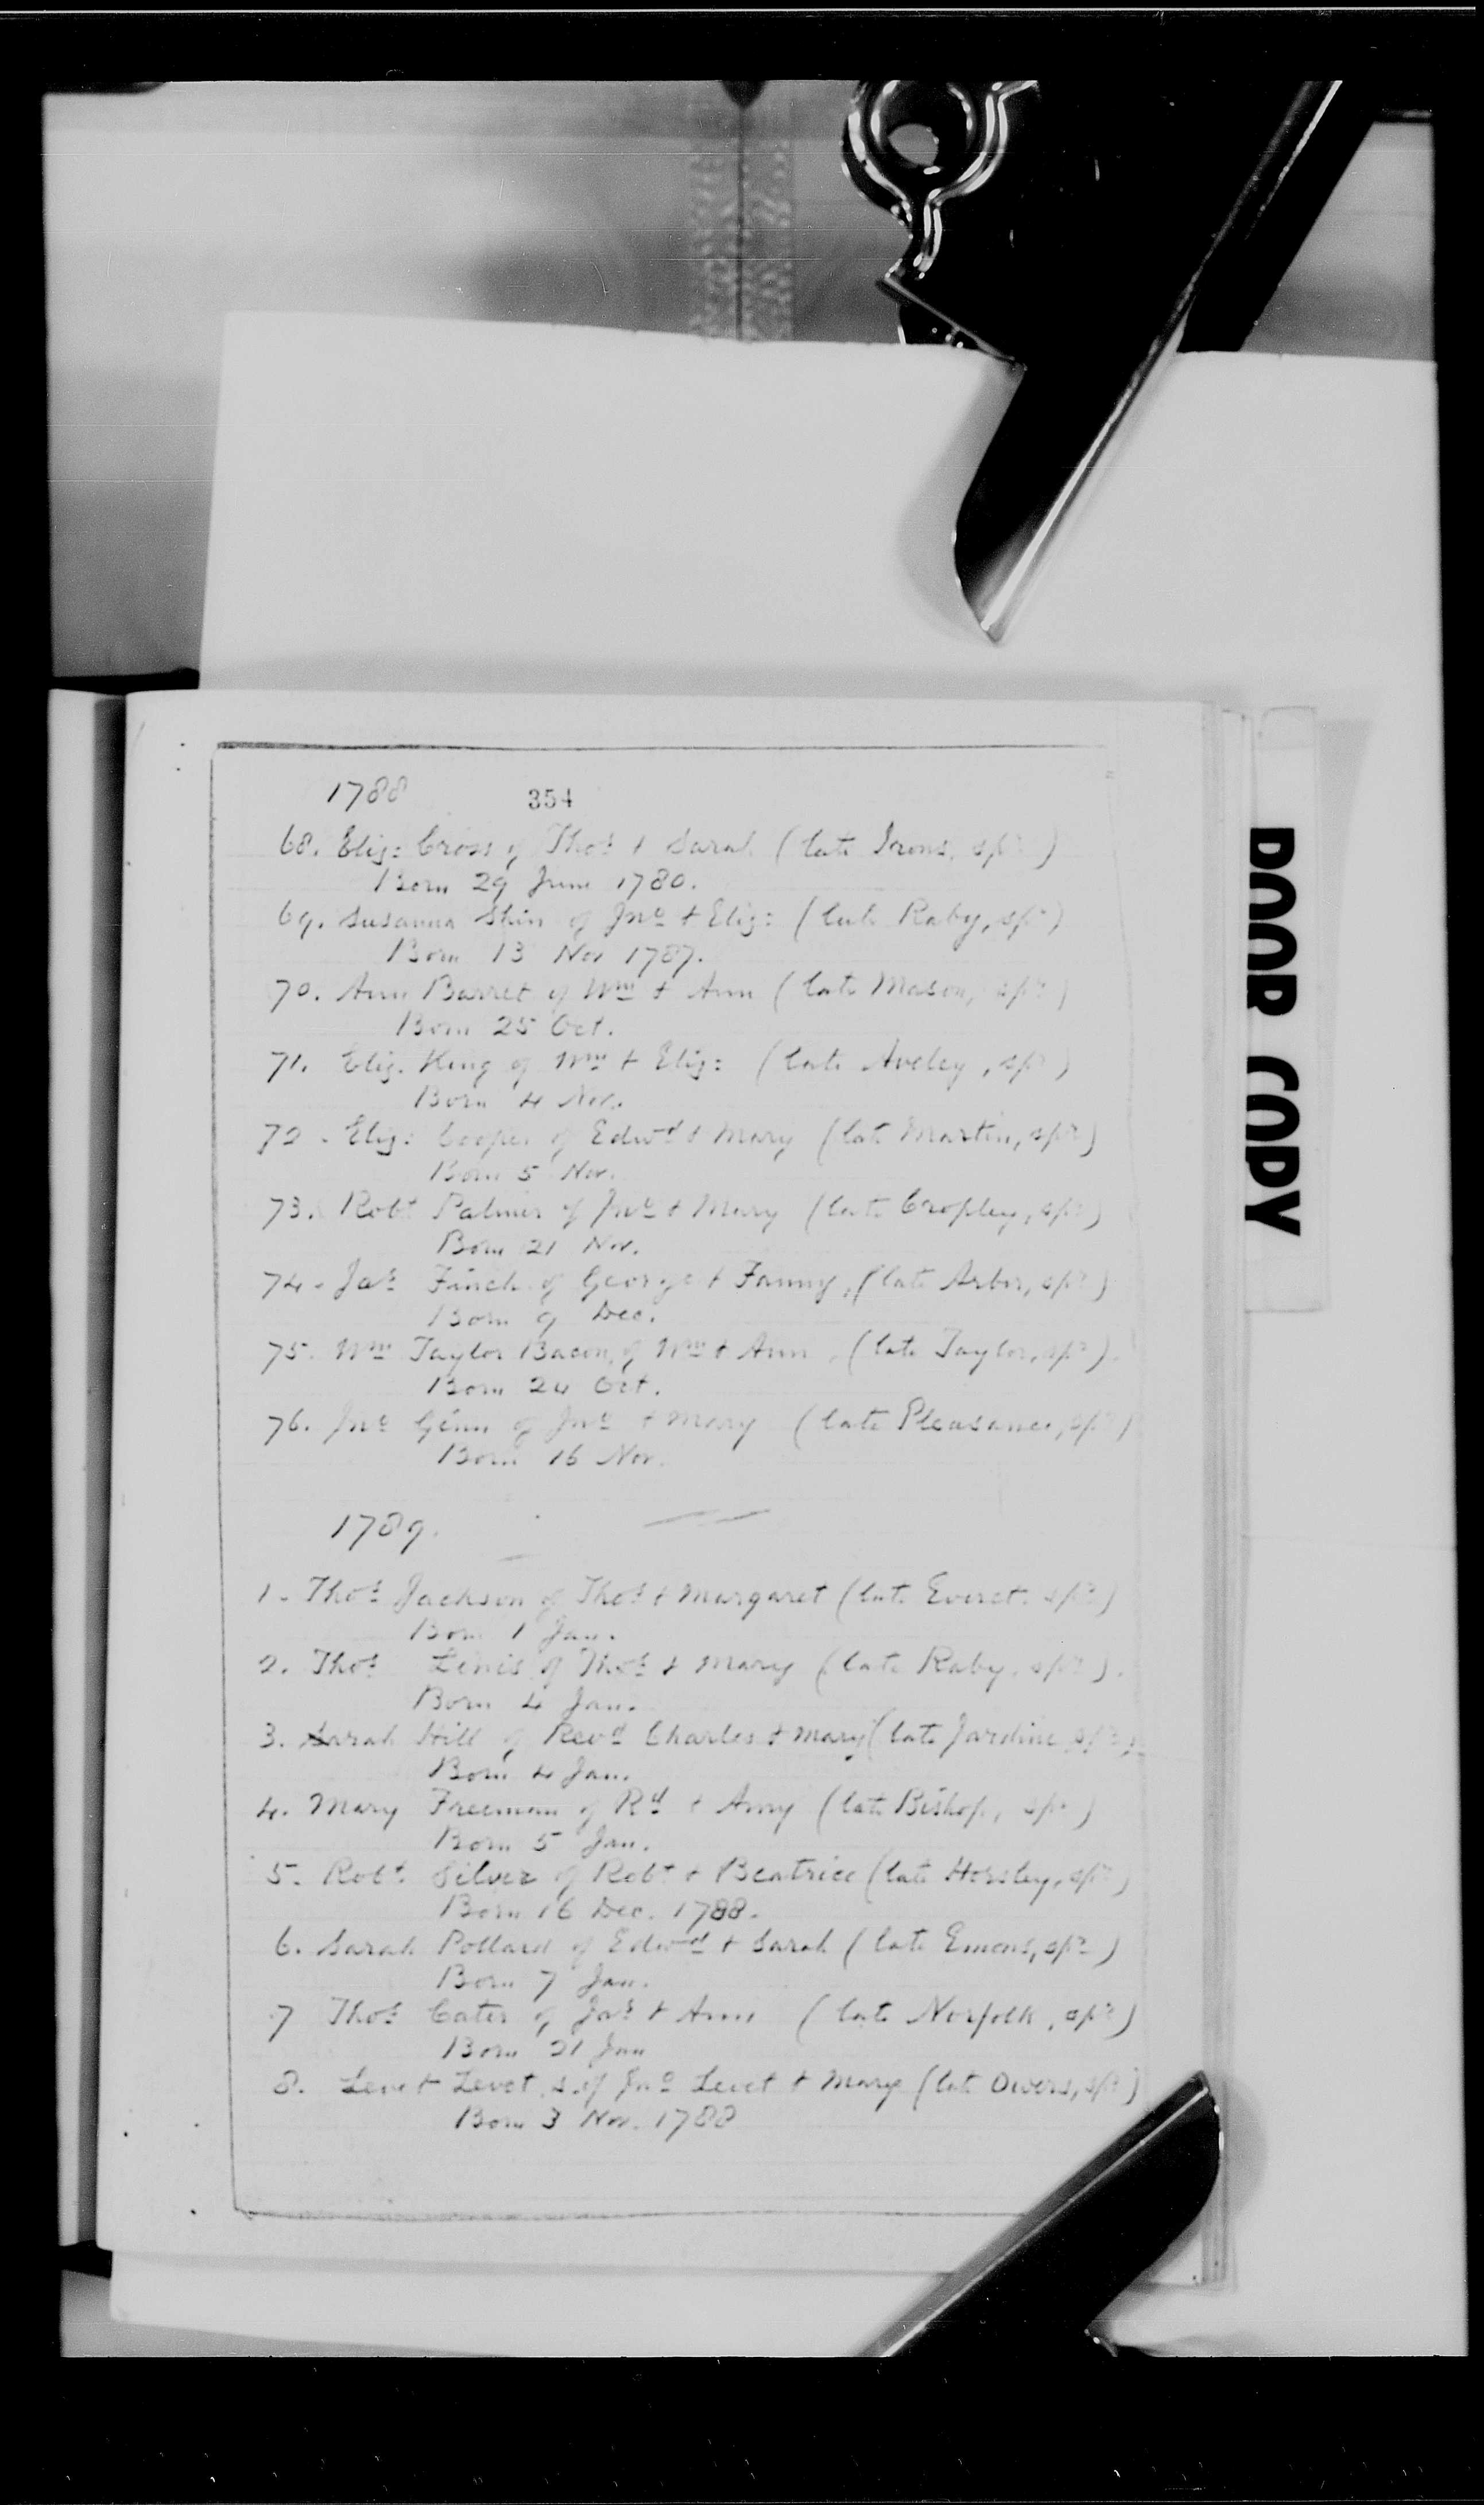 1788 354
68. Eliz: Cross of Thos + Sarah (late Irons, spr)
Born 29 June 1780.
69. Susanna Shin of Jno + Eliz: (late Raby, spr)
Born 13 Nov 1787.
70. Ann Barret of Wm + Ann (late Mason, spr)
Born 25 Oct.
71. Eliz. King of Wm + Eliz: (late Aveley, spr)
Born 4 Nov.
72. Eliz: Cooper of Edwd + Mary (late Martin, spr)
Born 5 Nov.
73. Robt Palmer of Jno + Mary (late Cropley, spr)
Born 21 Nov.
74. Jas Finch of George + Fanny, (late Arber, spr)
Born 9 Dec.
75. Wm Taylor Bacon, of Wm + Ann, (late Taylor, spr).
Born 24 Oct.
76. Jno Ginn of Jno + Mary (late Pleasance, spr)
Born 16 Nov.
1789.
1. Thos Jackson of Thos + Margaret (late Everet. spr)
Born 1 Jan.
2. Thos of Thos + Mary (late Raby. spr).
Born 4 Jan.
3. Sarah Hill of Revd Charles + Mary (late Jardine spr)
Born 4 Jan.
4. Mary Freeman of Rd + Amy (late Bishop, spr)
Born 5 Jan.
5. Robt Silver of Robt + Beatrice (late Horsley, spr)
Born 16 Dec. 1788.
6. Sarah Pollard of Edwd + Sarah (late Emons, spr)
Born 7 Jan.
7 Thos Cater of Jas + Ann (late Norfolk, spr)
Born 21 Jan
8. Levet Levet, s. of Jno Levet + Mary (late Owers, spr)
Born 3 Nov. 1788
POOR COPY